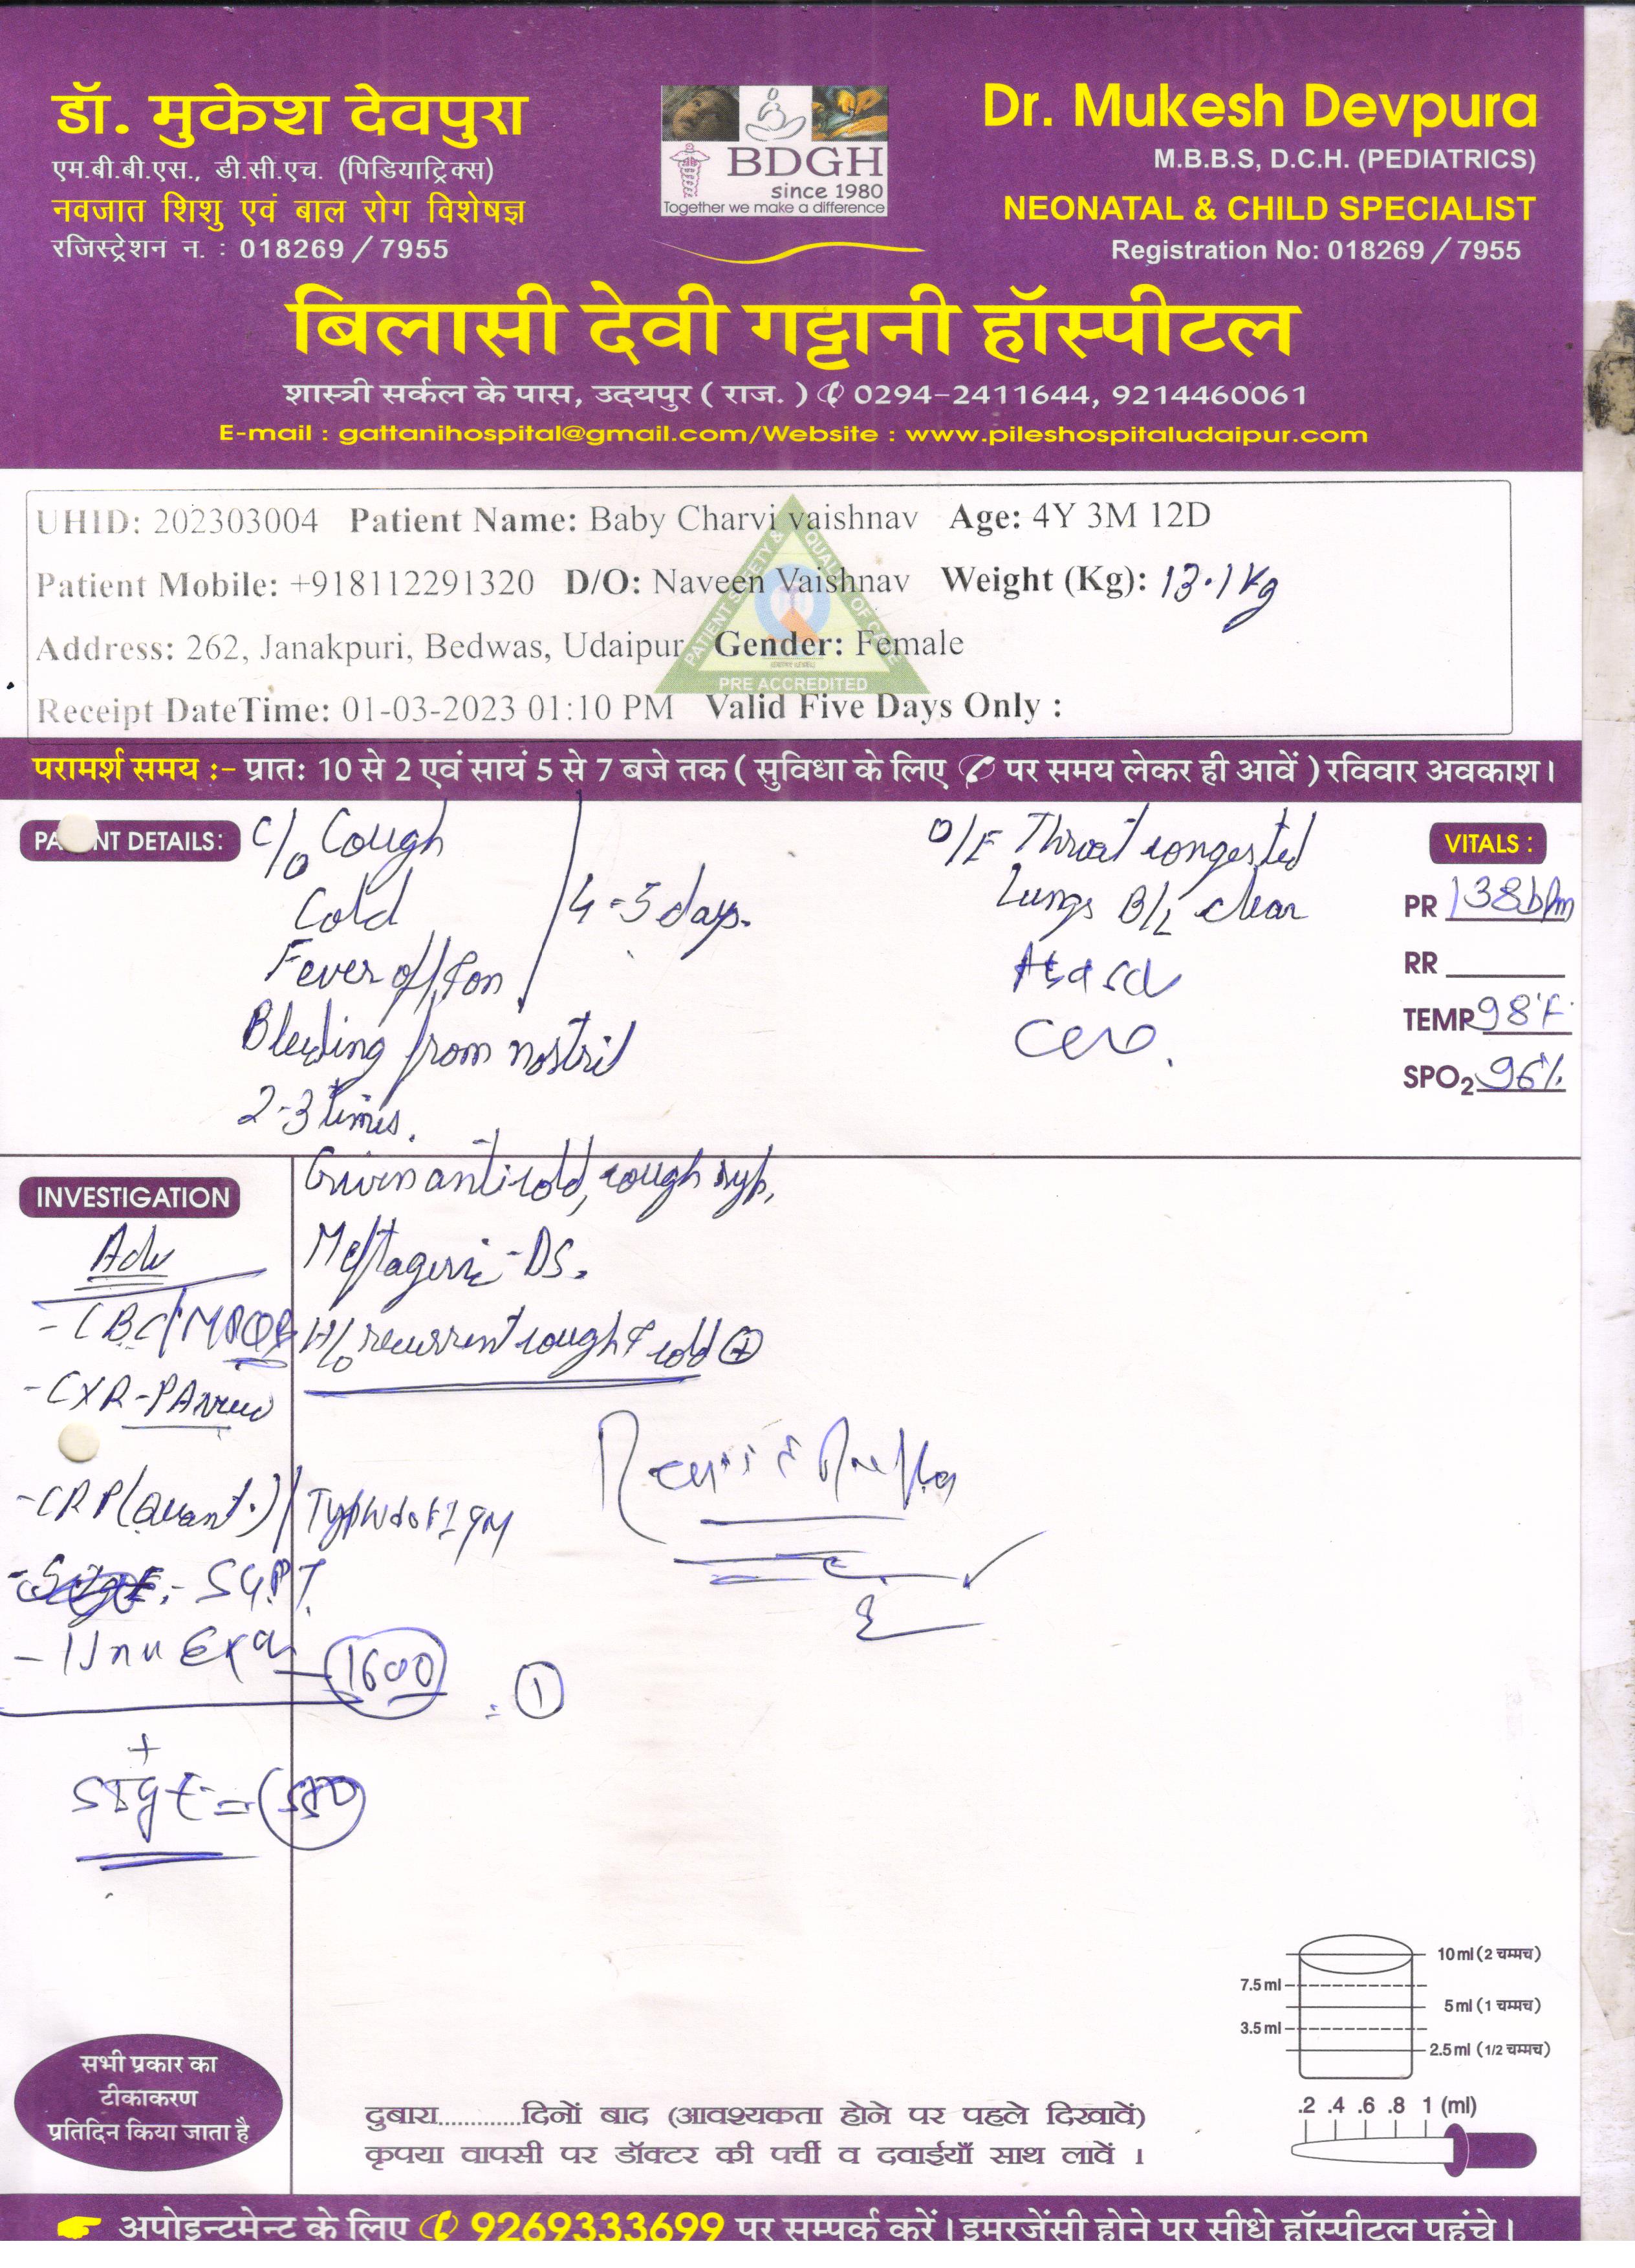 डॉ. मुकेश देवपुरा
एम.बी.बी.एस., डी.सी.एच. (पिडियाट्रिक्स)
नवजात शिशु एवं बाल रोग विशेषज्ञ
रजिस्ट्रेशन न. : 018269 / 7955
BDGH
since 1980
Together we make a difference
Dr. Mukesh Devpura
M.B.B.S, D.C.H. (PEDIATRICS)
NEONATAL & CHILD SPECIALIST
Registration No: 018269 / 7955
बिलासी देवी गट्टानी हॉस्पीटल
शास्त्री सर्कल के पास, उदयपुर ( राज. ) ✆ 0294-2411644, 9214460061
E-mail : gattanihospital@gmail.com/Website : www.pileshospitaludaipur.com
UHID: 202303004 Patient Name: Baby Charvi vaishnav Age: 4Y 3M 12D
Patient Mobile: +918112291320 D/O: Naveen Vaishnav Weight (Kg): 13.1 Kg
Address: 262, Janakpuri, Bedwas, Udaipur Gender: Female
Receipt DateTime: 01-03-2023 01:10 PM Valid Five Days Only :
PATIENT SAFETY & QUALITY OF CARE
PRE ACCREDITED
परामर्श समय :- प्रातः 10 से 2 एवं सायं 5 से 7 बजे तक ( सुविधा के लिए ✆ पर समय लेकर ही आवें ) रविवार अवकाश ।
PA NT DETAILS:
C/o Cough
Cold
Fever off & on
4-5 days.
Bleeding from nostril
2-3 times.
O/E Throat congested
Lungs B/L clear
VITALS :
PR 138bpm
RR
TEMP 98°F
SPO2 96%
Given anticold, cough syp,
Meftagesic-DS.
H/o recurrent cough & cold +
INVESTIGATION
Adv
- CBC/
- CXR-PA view
- CRP (Quant.) / Typhidot IgM
- SGPT
- 1600
= 1
+
सभी प्रकार का
टीकाकरण
प्रतिदिन किया जाता है
10 ml (2 चम्मच)
7.5 ml
5 ml (1 चम्मच)
3.5 ml
2.5 ml (1/2 चम्मच)
.2 .4 .6 .8 1 (ml)
दुबारा............दिनों बाद (आवश्यकता होने पर पहले दिखावें)
कृपया वापसी पर डॉक्टर की पर्ची व दवाईयाँ साथ लावें ।
अपोइन्टमेन्ट के लिए ✆ 9269333699 पर सम्पर्क करें । इमरजेंसी होने पर सीधे हॉस्पीटल पहुंचे ।